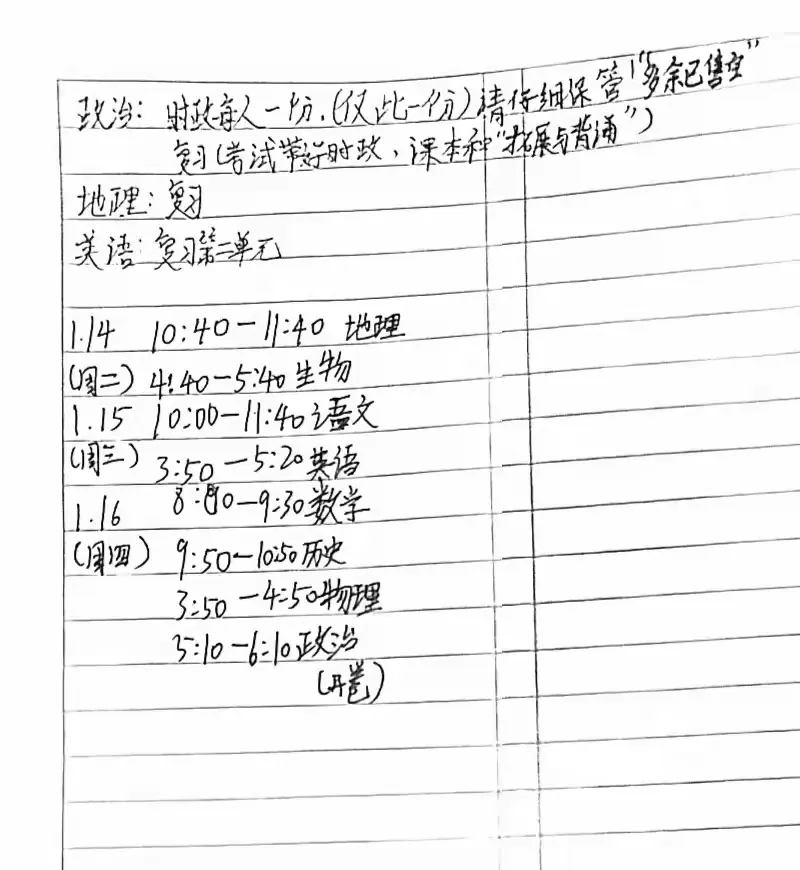 政治: 时政每人一份.(仅此一份)请仔细保管!"多余已售空"
复习(考试带好时政、课本和"拓展与背诵")
地理: 复习
英语: 复习第二单元
1.14 10:40-11:40 地理
(周二) 4:40-5:40 生物
1.15 10:00-11:40 语文
(周三) 3:50-5:20 英语
1.16 8:00-9:30 数学
(周四) 9:50-10:50 历史
3:50-4:50 物理
5:10-6:10 政治
(开卷)